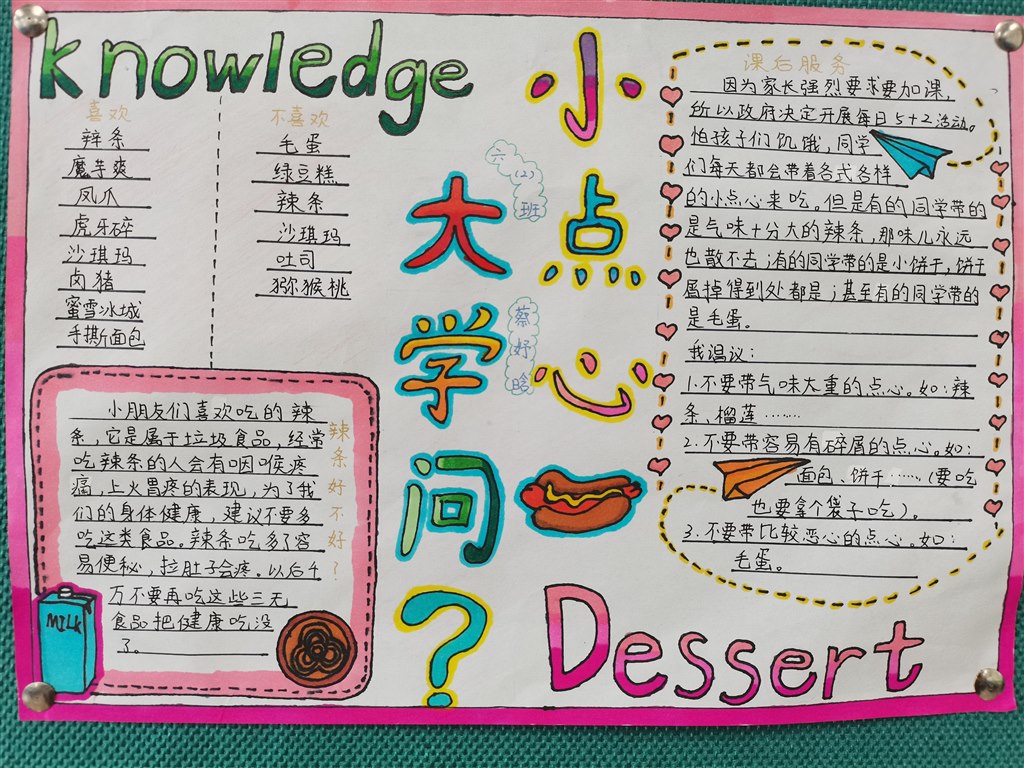 knowledge
喜欢
辣条
魔芋爽
凤爪
虎牙碎
沙琪玛
卤猪
蜜雪冰城
手撕面包
不喜欢
毛蛋
绿豆糕
辣条
沙琪玛
吐司
猕猴桃
小点心
大学问?
六(2)班
蔡妤晗
课后服务
因为家长强烈要求要加课,
所以政府决定开展每日5+2活动。
怕孩子们饥饿,同学
们每天都会带着各式各样
的小点心来吃,但是有的同学带的
是气味十分大的辣条,那味儿永远
也散不去;有的同学带的是小饼干,饼干
屑掉得到处都是;甚至有的同学带的
是毛蛋。
我倡议:
1.不要带气味太重的点心。如:辣
条、榴莲……
2.不要带容易有碎屑的点心。如:
面包、饼干……(要吃
也要拿个袋子吃)。
3.不要带比较恶心的点心。如:
毛蛋。
辣条好不好?
小朋友们喜欢吃的辣
条,它是属于垃圾食品,经常
吃辣条的人会有咽喉疼
痛,上火胃疼的表现,为了我
们的身体健康,建议不要多
吃这类食品。辣条吃多了容
易便秘,拉肚子会疼。以后千
万不要再吃这些三无
食品把健康吃没
了。
MILK
Dessert